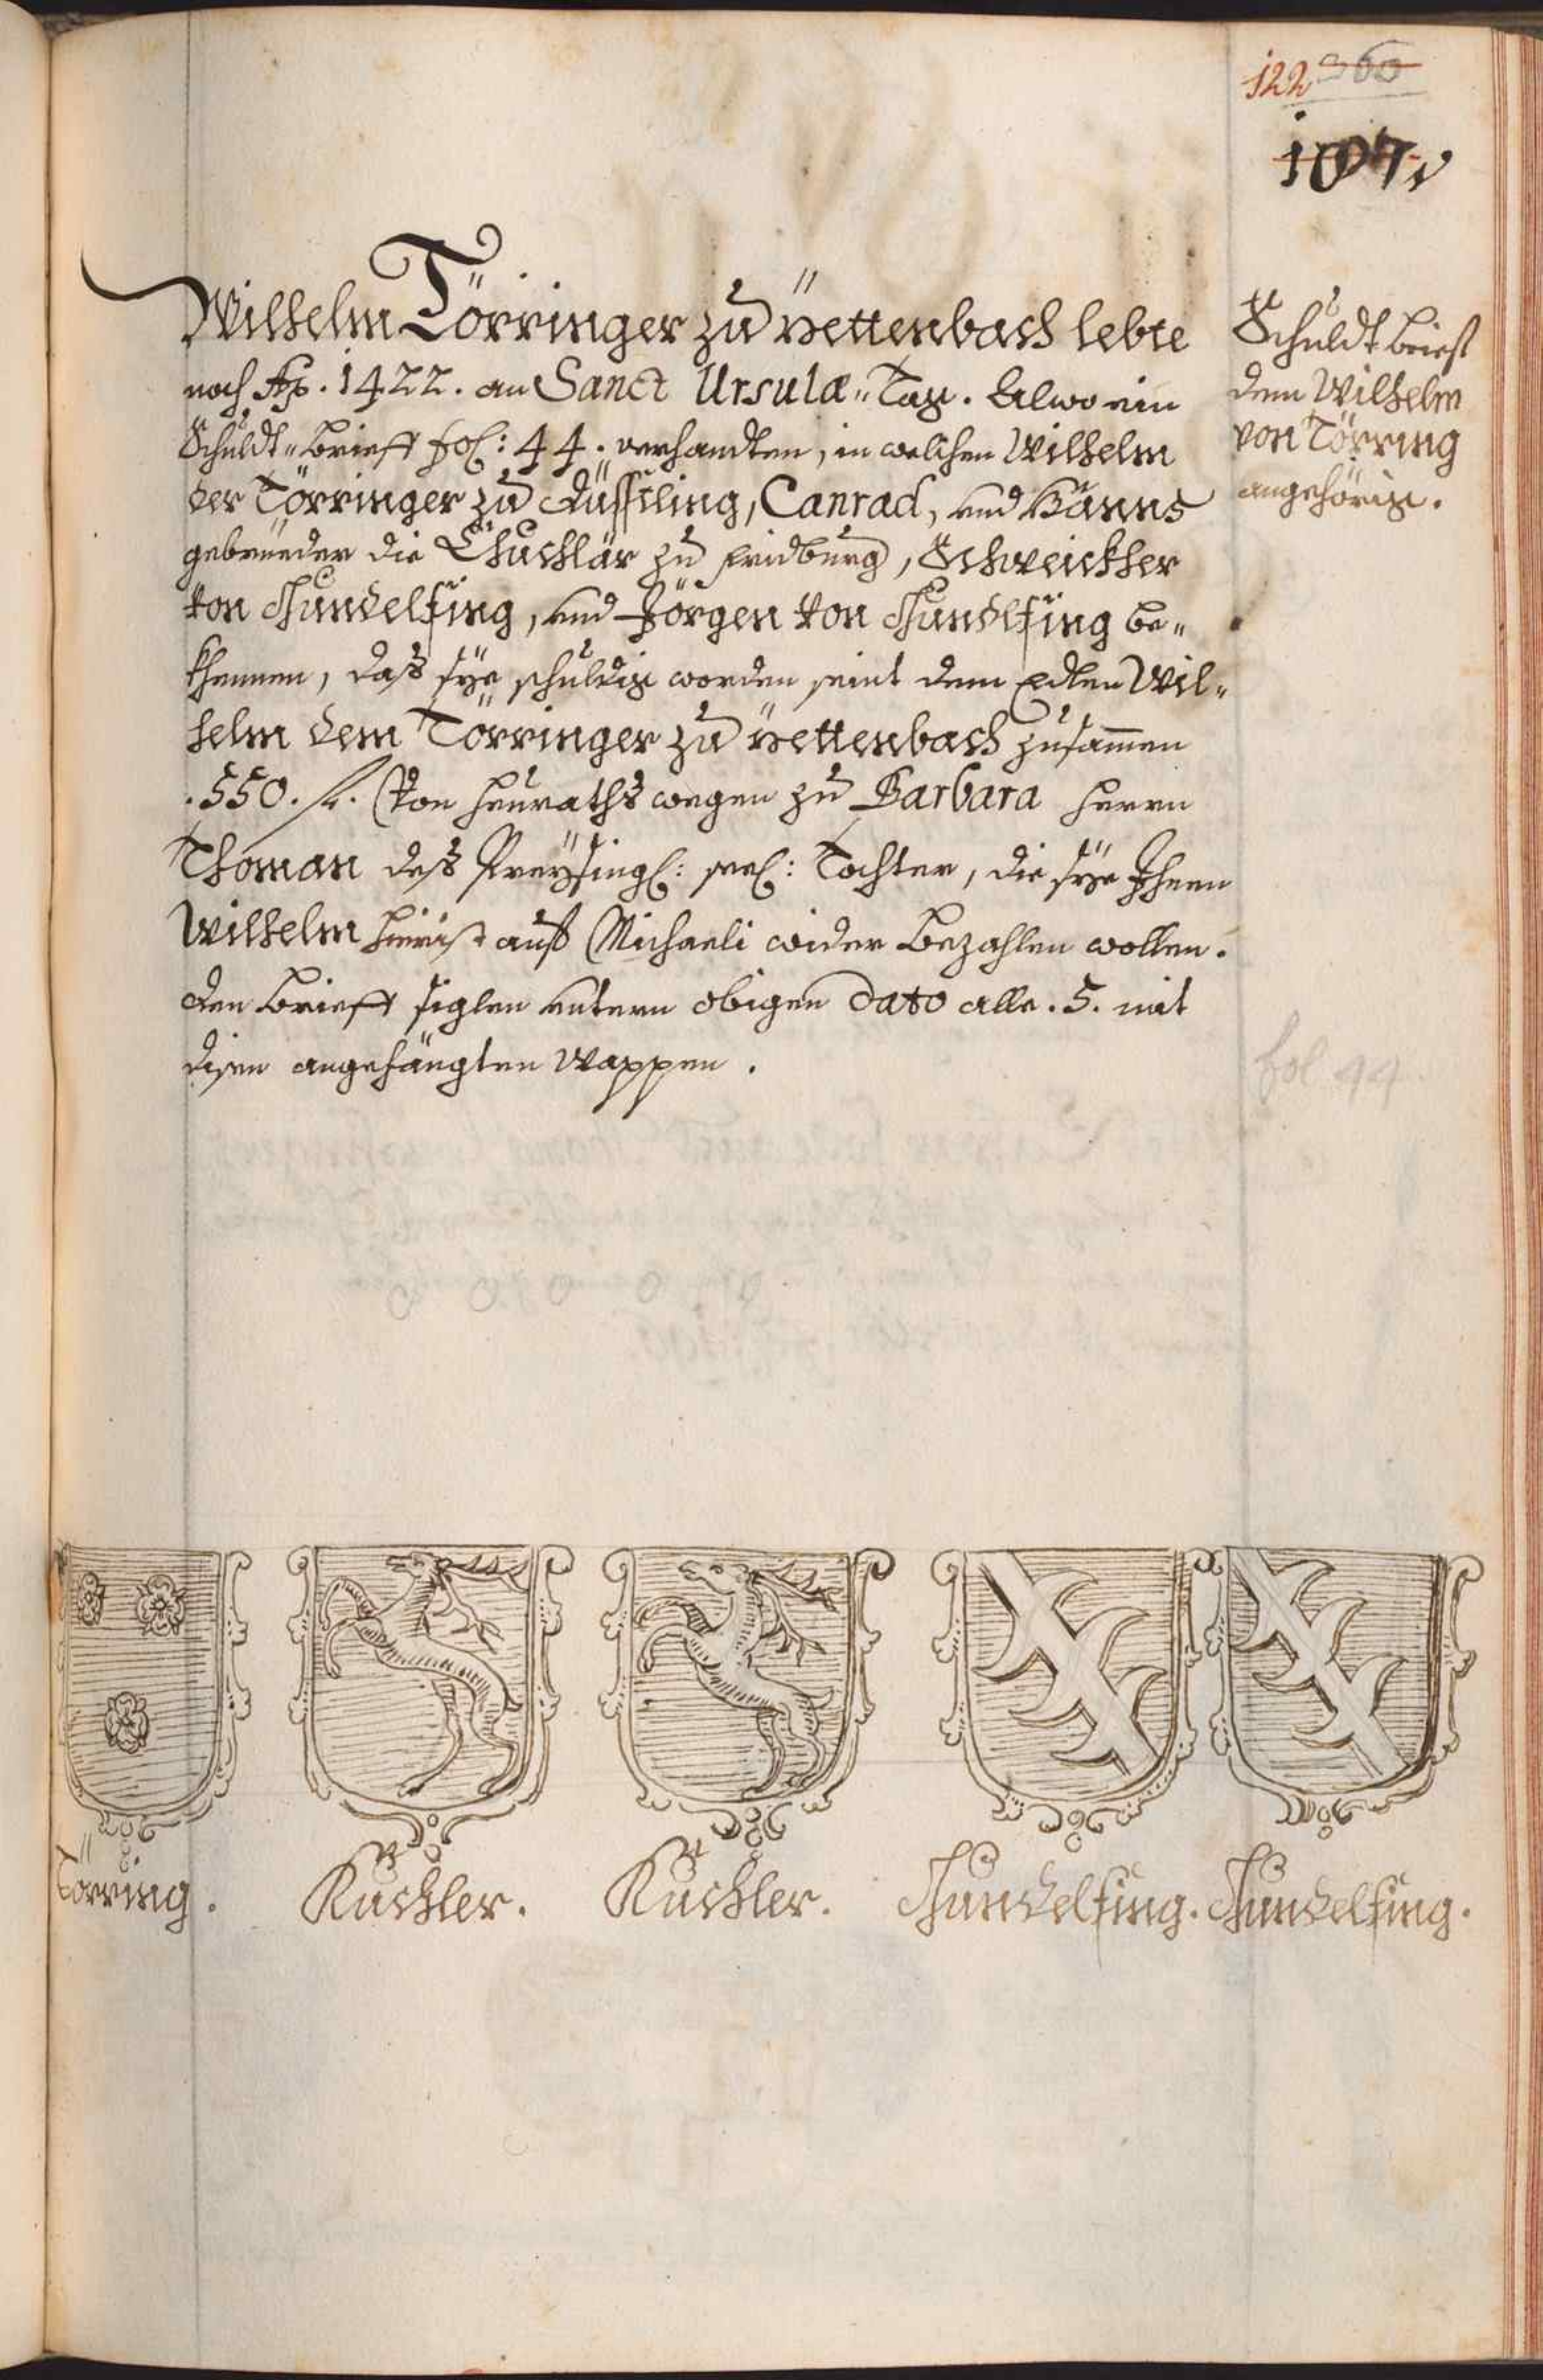 122 360
107v
Wilhelm Törringer zu Jettenbach lebte
noch Ao. 1422. an Sanct Ursulæ„ Tag. Alwo ein
Schuldt„ Brieff fol: 44. verhandten, in welchen Wilhelm
der Törringer zu Tüssling, Canrad, und Hänns
gebrüeder die Chuchlär zu Fridburg, Schweickher
von Gundelfing, und Jörgen von Gundlfing be„
khennen, daß sÿe schuldig worden seint dem Edlen Wil„
helm dem Törringer zu Jettenbach zusam̄en
.550. fl. Von heuraths wegen zu Barbara herrn
Thoman deß Preÿsing: seel: Tochter, die sÿe Ihnen
Wilhelm hinrist auf Michaeli wider bezahlen wollen.
den brieff siglen untern obigen Dato alle .5. mit
disen angehängten Wappen.
Schuldt brieff
dem Wilhelm
von Törring
angehörig.
fol 44
Törring.
Kuchler.
Kuchler.
Gundelfing.
Gundelfing.